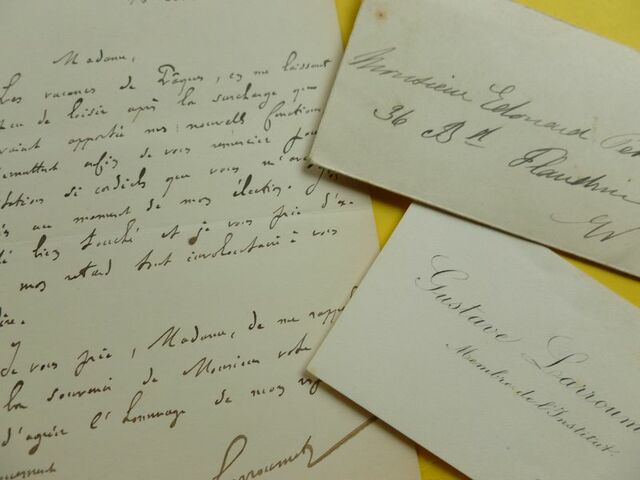 Madame,
Les vacances de Pâques, en me laissant
peu de loisir après la surcharge que
apporté mes nouvelles fonctions
enfin de vous remercier pour
si cordiales que vous m'avez
au moment de mon élection.
bien touché et je vous prie d'ex
mon retard tout involontaire à vous
dire.
Je vous prie, Madame, de me rappeler
bon souvenir de Monsieur votre
d'agréer l'hommage de mes
Larroumet
Monsieur Edouard
36 Bd Flandrin
Gustave Larroum
Membre de l'Institut